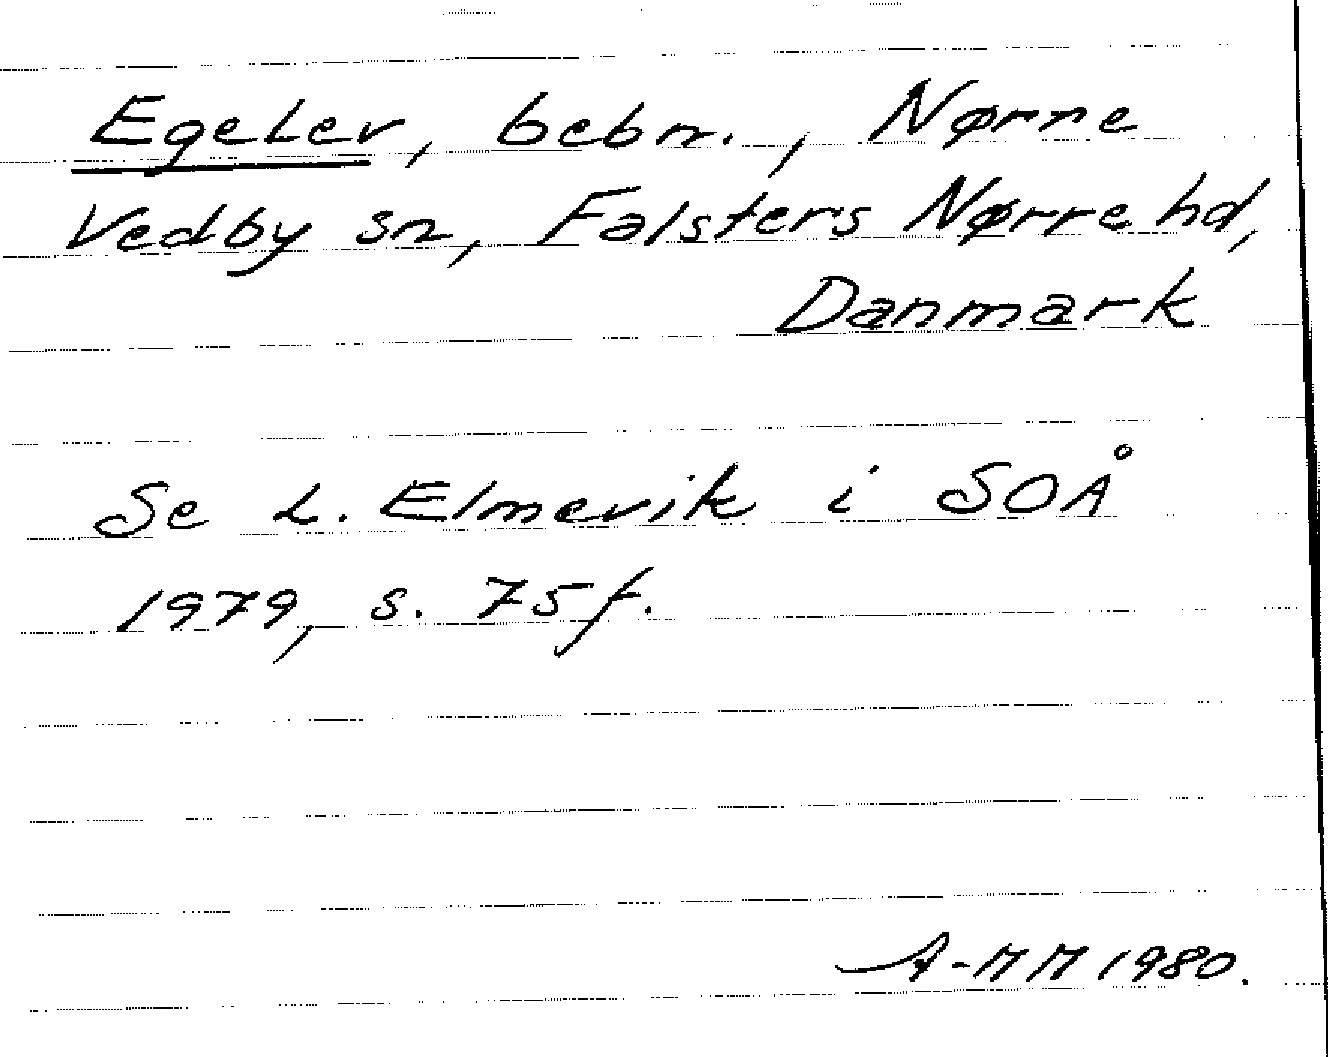 Egelev, bebn., Nørre
Vedby sn, Falsters Nørre hd,
Danmark
Se L. Elmevik i SOÅ
1979, s. 75 f.
A-MM 1980.